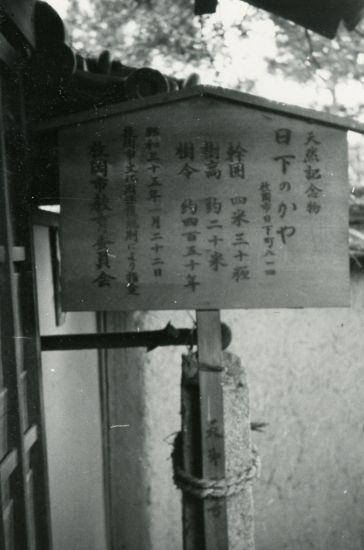 天然記念物
日下のかや
枚岡市日下町八一四
幹囲 四米三十糎
樹高 約二十米
樹令 約四百五十年
昭和三十五年一月二十二日
枚岡市文化財保護規則により指定
枚岡市教育委員会